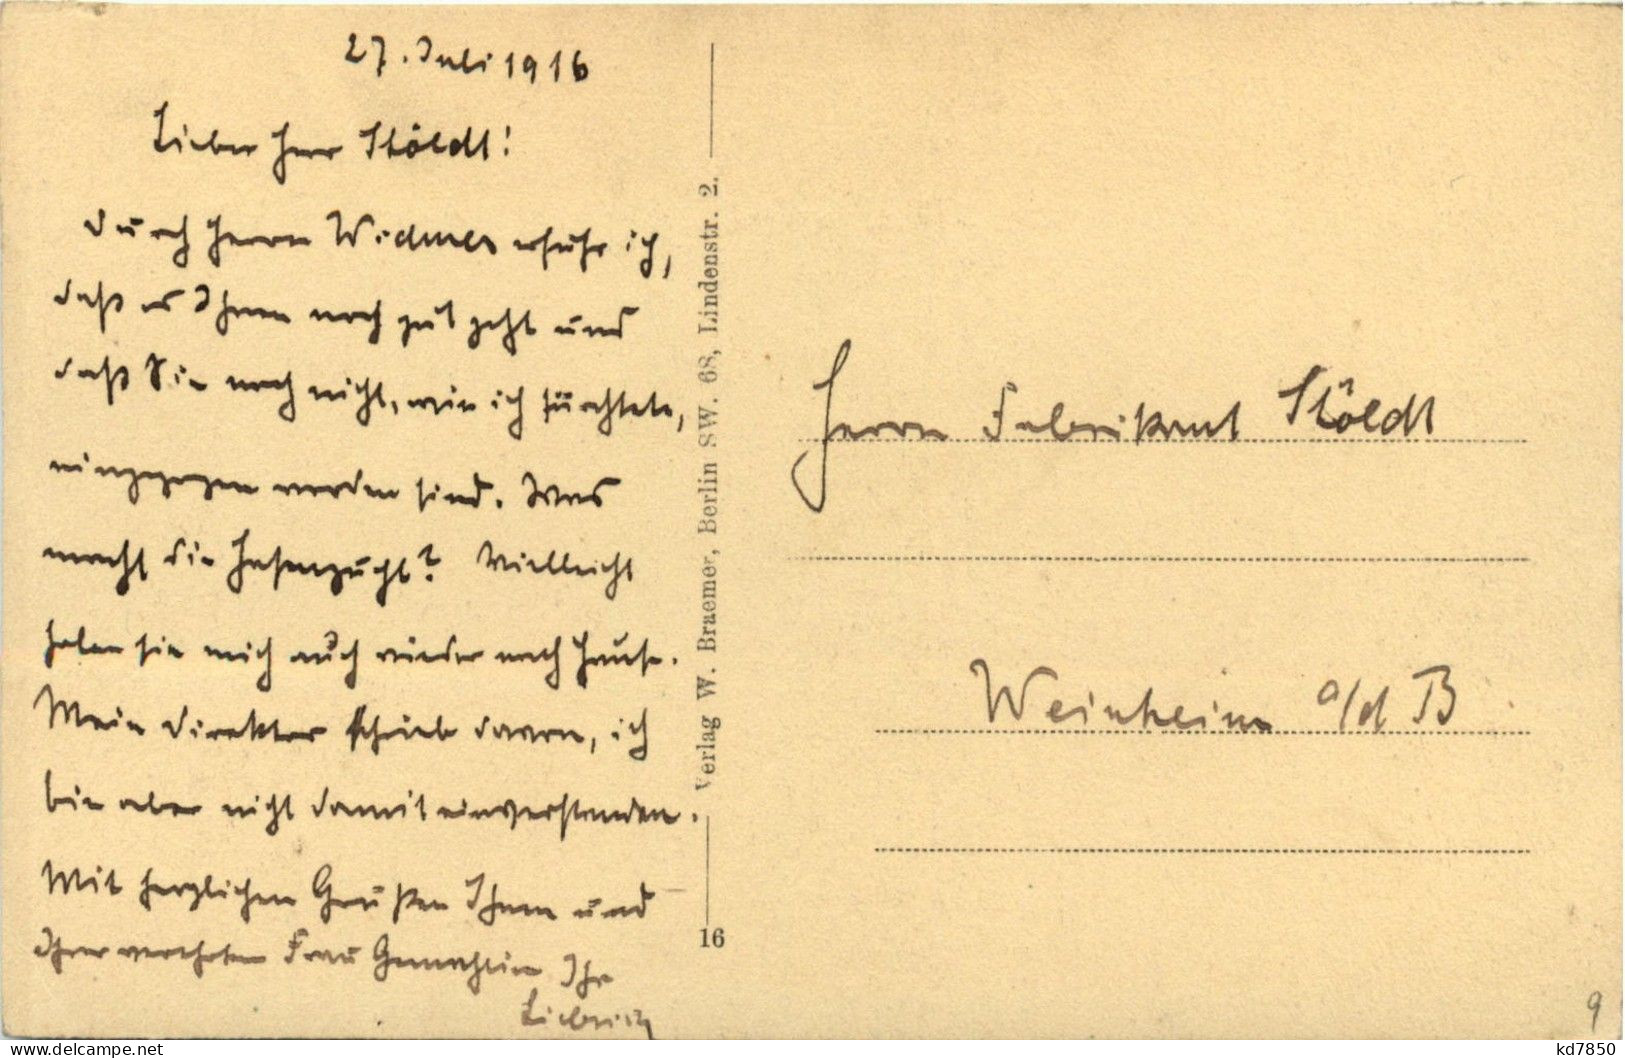 27. Juli 1916
Lieber Herr Stöldt!
durch Herrn Widmer erfuhr ich,
daß es Ihnen noch gut geht und
daß Sie noch nicht, wie ich fürchtete,
eingezogen worden sind. Was
macht die Hasenzucht? Vielleicht
holen sie mich auch wieder nach Hause.
Mein Direktor schrieb davon, ich
bin aber nicht damit einverstanden.
Mit herzlichen Grüßen Ihnen und
Ihrer verehrten Frau Gemahlin Ihr
Verlag W. Braemer, Berlin SW. 68, Lindenstr. 2.
16
Herrn Fabrikant Stöldt
Weinheim a/d B
9
kd7850